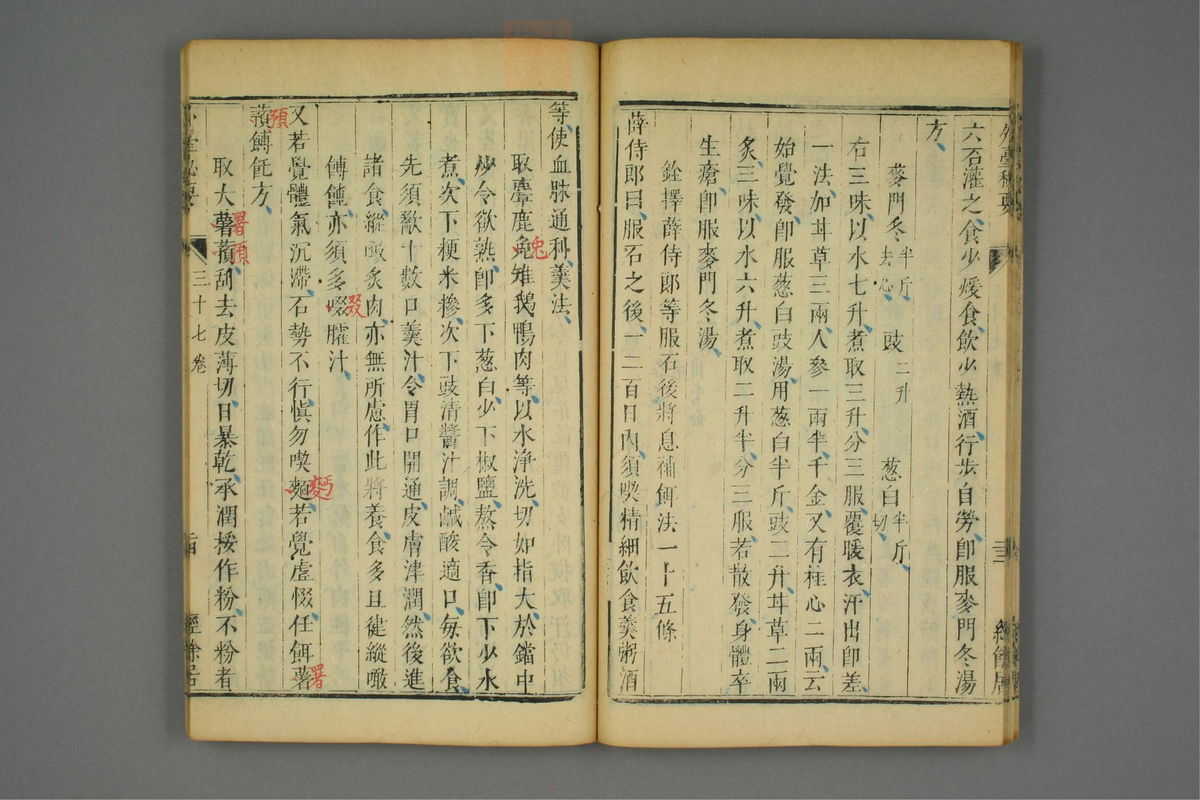 外臺秘要
六石灌之食少煖食飲少熱酒行步自勞即服麥門冬湯
方
麥門冬半斤去心 豉二升 葱白半斤切
右三味以水七升煮取三升分三服覆暖衣汗出即差
一法加甘草三兩人參一兩半千金又有桂心二兩云
始覺發即服葱白豉湯用葱白半斤豉二升甘草二兩
炙三味以水六升煮取二升半分三服若散發身體卒
生瘡即服麥門冬湯
銓擇薛侍郎等服石後將息補餌法一十五條
薛侍郎曰服石之後一二百日內須喫精細飲食羹粥酒
等使血脉通利羹法
取麞鹿兔雉鵝鴨肉等以水淨洗切如指大於鐺中
炒令欲熟即多下葱白少下椒鹽熬令香即下少水
煮次下粳米摻次下豉清醬汁調鹹酸適口每欲食
先須歠十數口羹汁令胃口開通皮膚津潤然後進
諸食縱噉炙肉亦無所慮作此將養食多且健縱噉
餺飥亦須多啜臛汁
又若覺體氣沉滯石勢不行慎勿喫麵若覺虛惙任餌薯
蕷餺飥方
取大薯蕷刮去皮薄切日暴乾承潤挼作粉不粉者
三十七卷